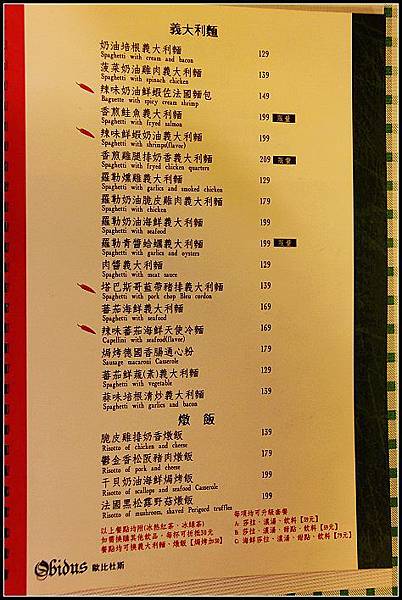 義大利麵
奶油培根義大利麵 129
Spaghetti with cream and bacon
菠菜奶油雞肉義大利麵 139
Spaghetti with spinach chicken
辣味奶油鮮蝦佐法國麵包 149
Baguette with spicy cream shrimp
香煎鮭魚義大利麵 199
Spaghetti with fryed salmon
辣味鮮蝦奶油義大利麵 199
Spaghetti with shrimps(flavor)
香煎雞腿排奶香義大利麵 209
Spaghetti with fryed chicken quarters
羅勒燻雞義大利麵 129
Spaghetti with garlics and smoked chicken
羅勒奶油脆皮雞肉義大利麵 179
Spaghetti with chicken
羅勒奶油海鮮義大利麵 199
Spaghetti with seafood
羅勒青醬蛤蠣義大利麵 199
Spaghetti with garlics and oysters
肉醬義大利麵 129
Spaghetti with meat sauce
塔巴斯哥藍帶豬排義大利麵 139
Spaghetti with pork chop Bleu cordon
蕃茄海鮮義大利麵 169
Spaghetti with seafood
辣味蕃茄海鮮天使冷麵 169
Capellini with seafood(flavor)
焗烤德國香腸通心粉 179
Sausage macaroni Casserole
蕃茄鮮蔬(素)義大利麵 129
Spaghetti with vegetable
蒜味培根清炒義大利麵 139
Spaghetti with garlics and bacon
燉 飯
脆皮雞排奶香燉飯 139
Risotto of chicken and cheese
鬱金香松阪豬肉燉飯 179
Risotto of pork and cheese
干貝奶油海鮮焗烤飯 199
Risotto of scallops and seafood Casserole
法國黑松露野菇燉飯 199
Risotto of mushroom, shaved Perigord truffles
以上餐點均附(冰熱紅茶、冰綠茶)
如需換購其他飲品，每杯可折抵30元
餐點均可換義大利麵、燉飯【焗烤加30】
每項均可升級套餐
A: 莎拉、濃湯、飲料【39元】
B: 莎拉、濃湯、甜點、飲料【59元】
C: 海鮮莎拉、濃湯、甜點、飲料【79元】
Obidus 歐比杜斯